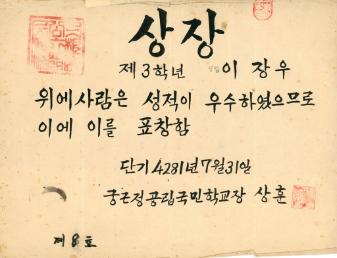 상장
제3학년 이장우
위에사람은 성적이 우수하였으므로
이에 이를 표창함
단기4281년7월31일
궁근정공립국민학교장 상훈
제8호